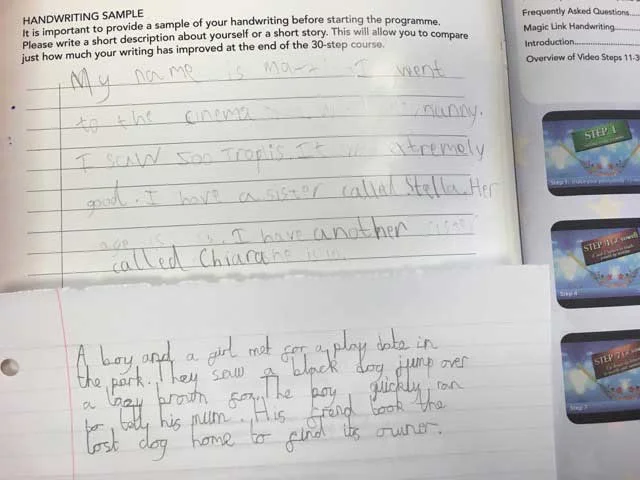 HANDWRITING SAMPLE
It is important to provide a sample of your handwriting before starting the programme.
Please write a short description about yourself or a short story. This will allow you to compare
just how much your writing has improved at the end of the 30-step course.
My name is I went
to the cinema nanny.
I saw 500 It extremely
good. I have a sister called Stella. Her
age is I have another sister
called Chiara
A boy and a girl met for a play date in
the park. They saw a black dog jump over
a lazy brown fox. The boy quickly ran
to tell his mum. His frend took the
lost dog home to find its owner.
Frequently Asked Questions
Magic Link Handwriting
Introduction
Overview of Video Steps 11-3
STEP 1
Step 1
Step 4
STEP 7
Step 7